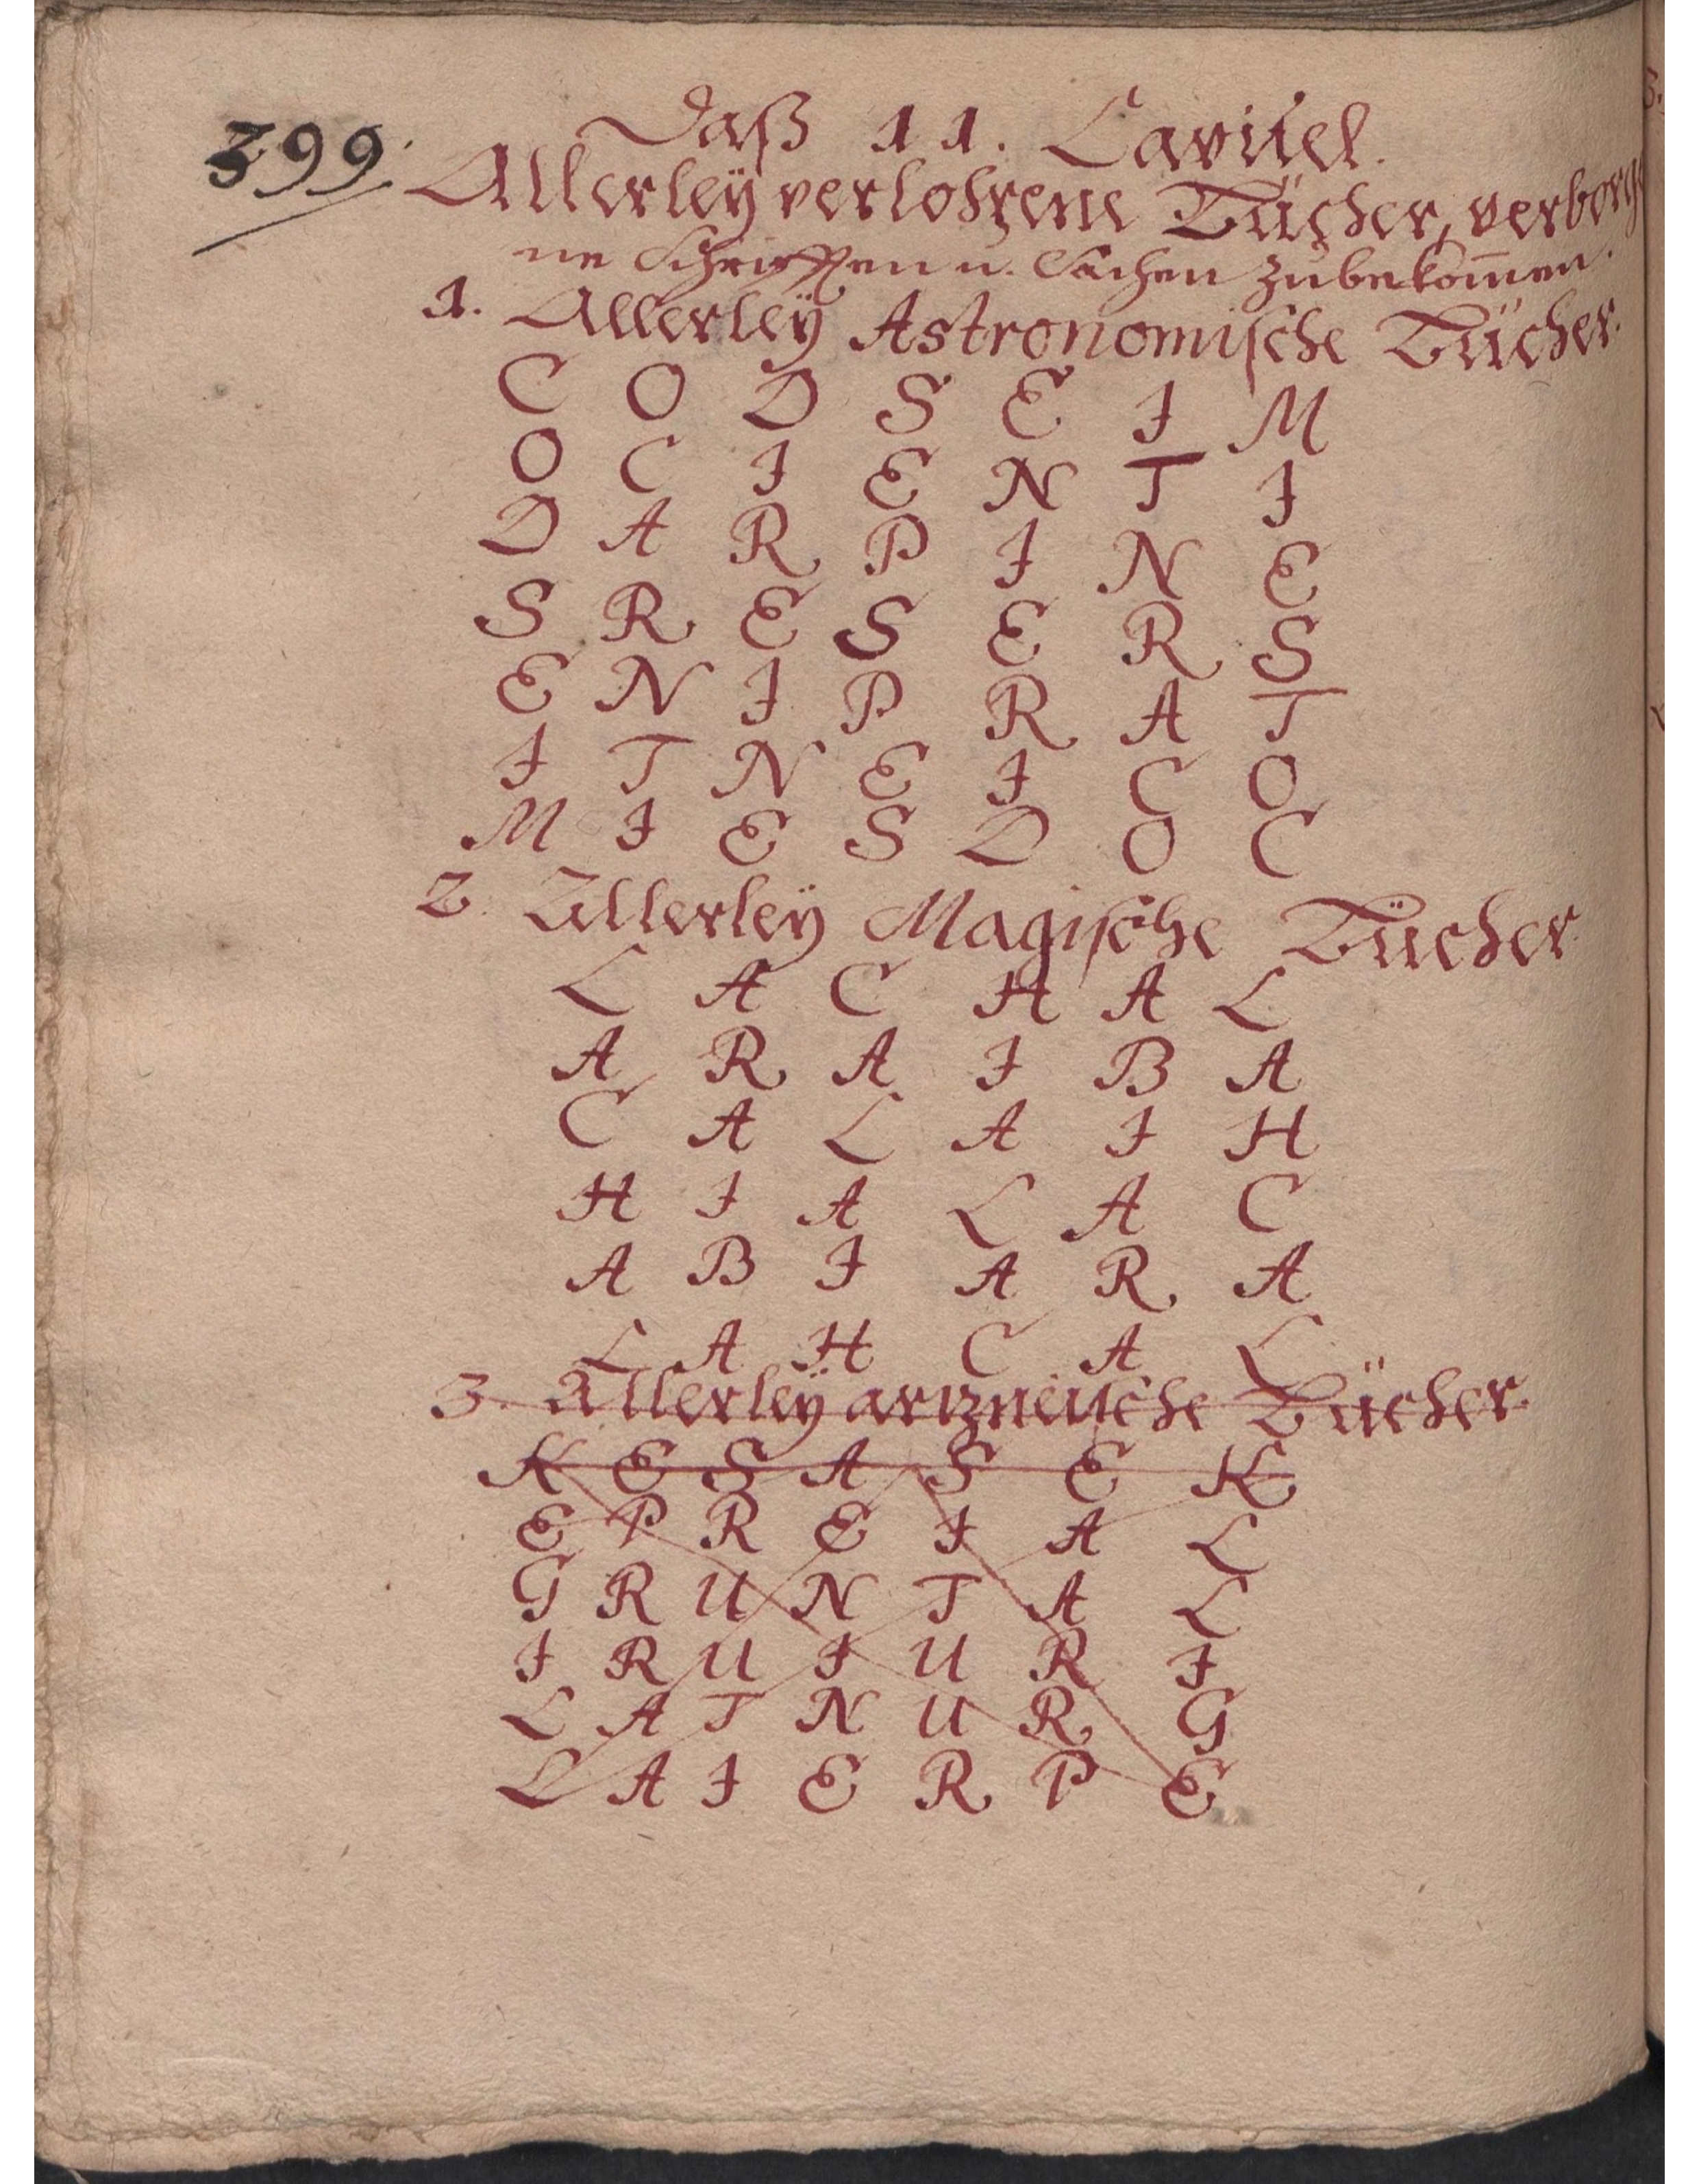 399.
Daß 11. Capitel.
Allerleÿ verlohrene Bücher, verborge
ne Schrifften u. Sachen zubekom̅en.
1. Allerleÿ Astronomische Bücher.
C O D S E I M
O C I E N T I
D A R P I N E
S R E S E R S
E N I P R A T
I T N E I C O
M I E S D O C
2. Allerleÿ Magische Bücher.
L A C H A L
A R A I B A
C A L A I H
H I A L A C
A B I A R A
L A H C A L
3. Allerleÿ artzneische Bücher.
K E S A S E K
E P R E I A L
G R U N T A L
I R U I U R I
L A T N U R G
L A I E R P E